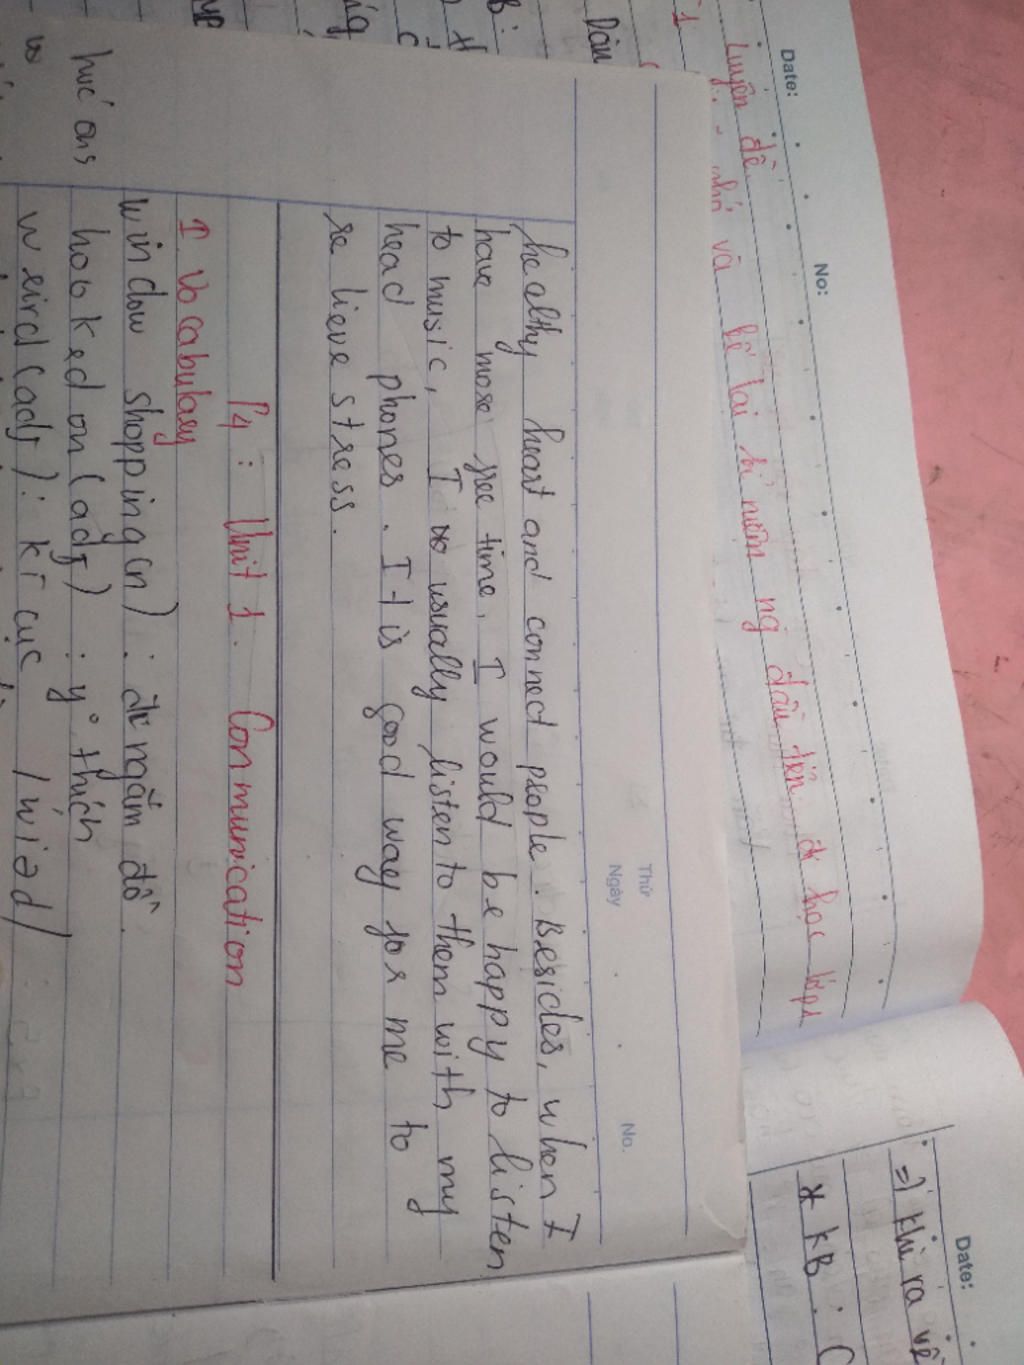 Date:
No:
luyện đề
và kể lại kỉ niệm ng đầu tiên đi học lớp 1
Dàn
Thứ
Ngày
No.
healthy heart and connect people. Besides, when I
have more free time, I would be happy to listen
to music, I usually listen to them with my
head phones. It is good way for me to
re lieve stress.
P4: Unit 1. Communication
I. Vocabulary
window shopping (n): đi ngắm đồ
hooked on (adj): yêu thích
weird (adj): kì cục /wiəd/
Date:
=> khi ra về
* KB: